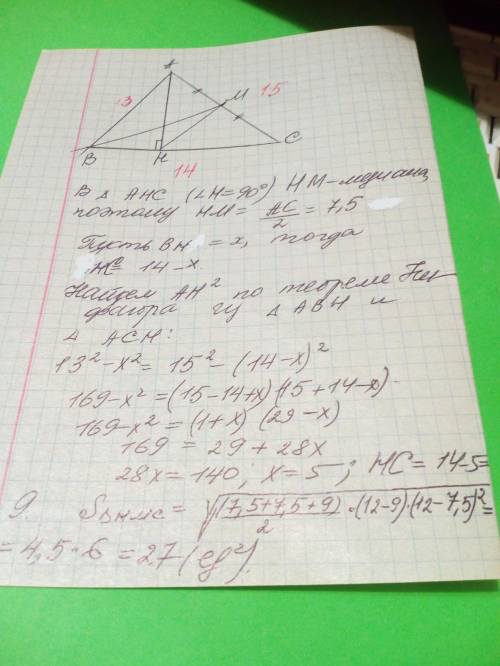 A
13
M
15
B
H
C
14
В △ AHC (∠H=90°) HM-медиана,
поэтому HM = AC/2 = 7,5
Пусть BH = x, тогда
HC = 14-x
Найдем AH² по теореме Пи-
фагора из △ ABH и
△ ACH:
13² - x² = 15² - (14-x)²
169-x² = (15-14+x)(15+14-x)
169-x² = (1+x) (29-x)
169 = 29 + 28x
28x = 140; x = 5; HC = 14-5=
9. S△HMC = √((7,5+7,5+9)/2 · (12-9)·(12-7,5)² =
= 4,5·6 = 27 (ед²).